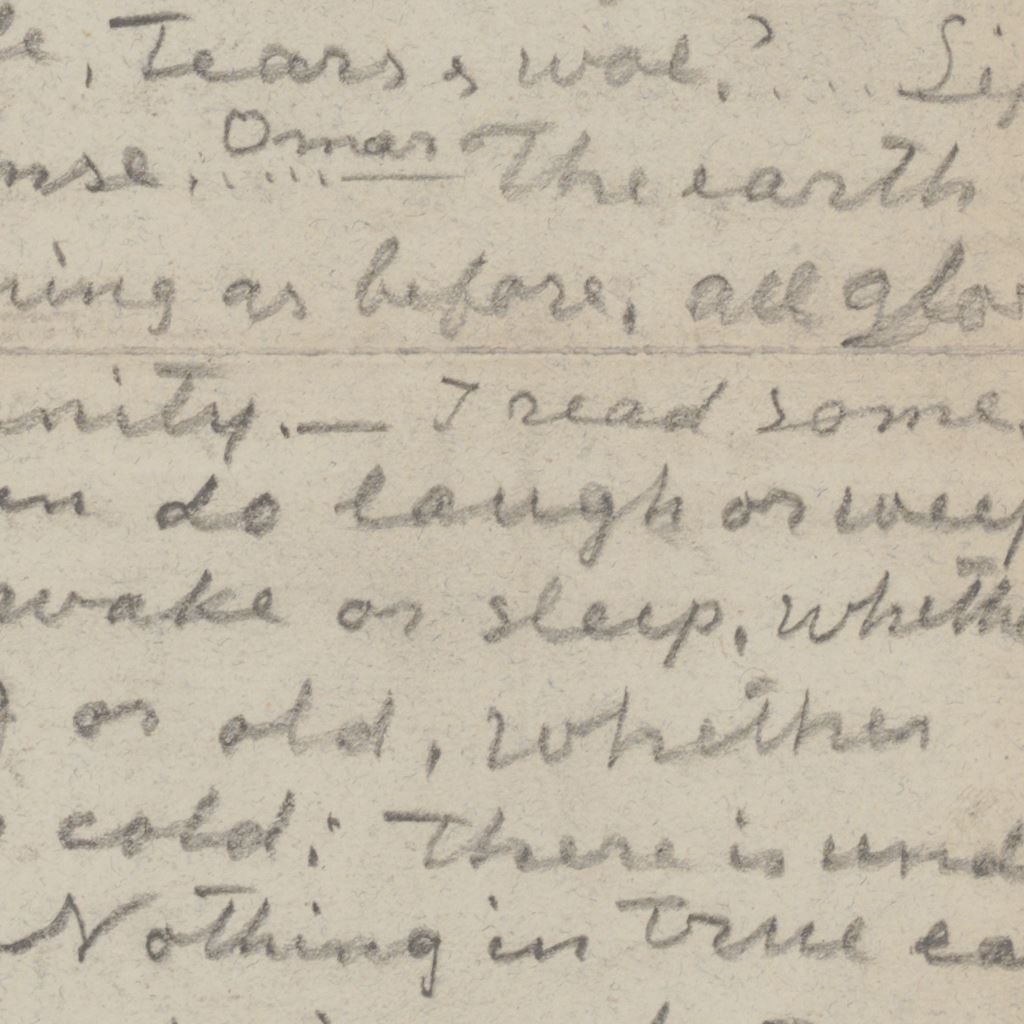 , Tears & woe.? ....
Omar
The earth
as before, all
— I read some
do laugh or weep
wake or sleep, whethe
or old, whether
cold; There is und
Nothing in true ea